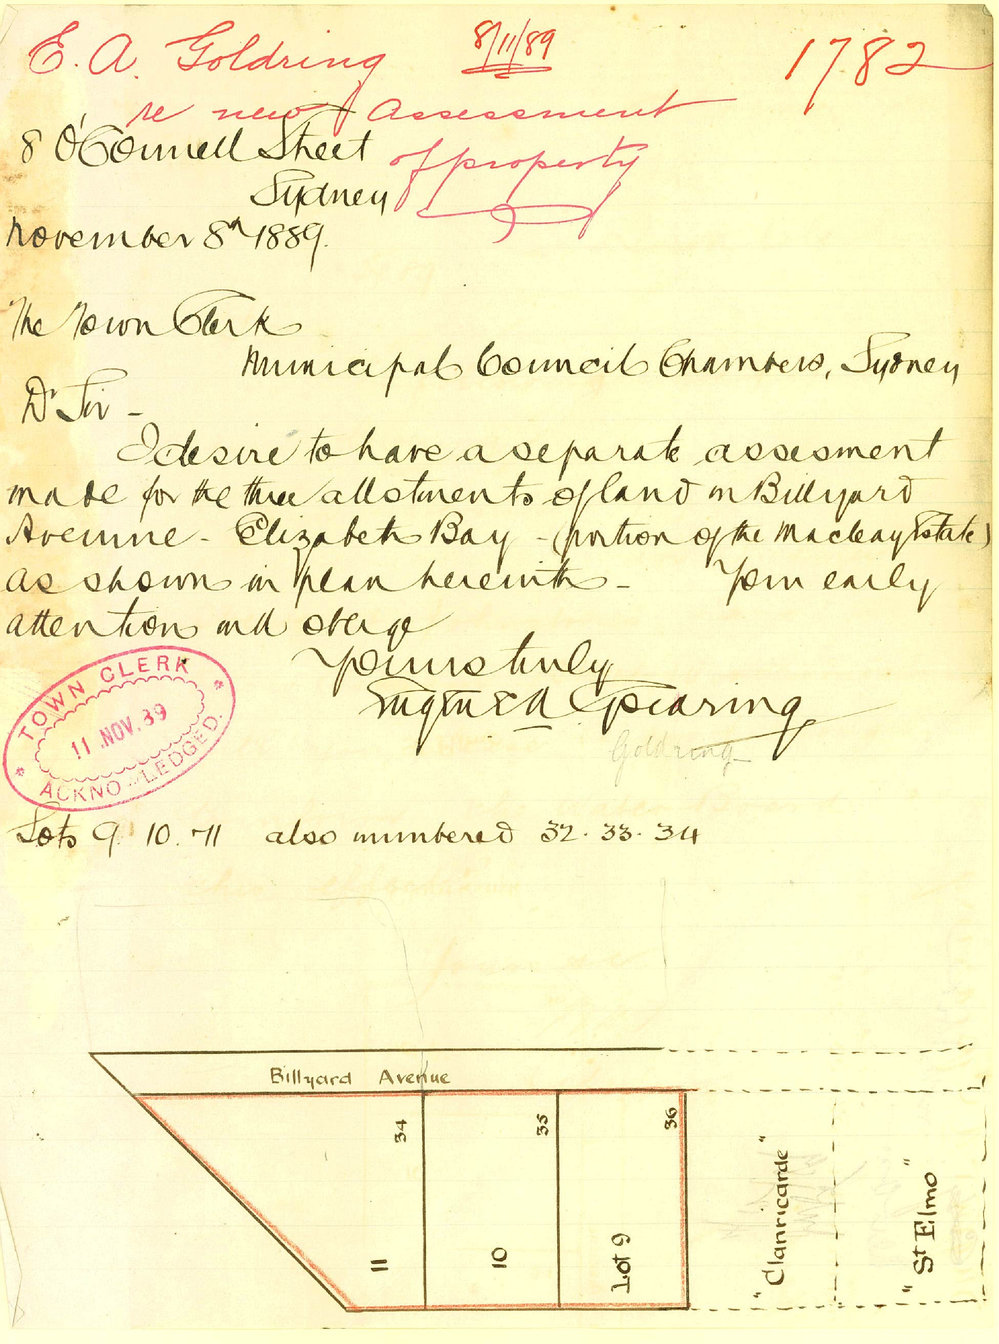 E. A. Goldring 8/11/89 1782
re new Assessment
of property
8 O'Connell Street
Sydney
November 8th 1889.
The Town Clerk
Municipal Council Chambers, Sydney
Dr Sir -
I desire to have a separate assesment
made for the three allotments of land in Billyard
Avenune - Elizabeth Bay - (portion of the Macleay Estate)
as shown in plan herewith - Your early
attention will oblige
Yours truly
Eugene A
Goldring
TOWN CLERK
11 NOV. 89
ACKNO-LEDGED.
Lots 9. 10. 11 also numbered 32. 33. 34
Billyard Avenue
34
35
36
11
10
Lot 9
"Clanricarde"
"St Elmo"